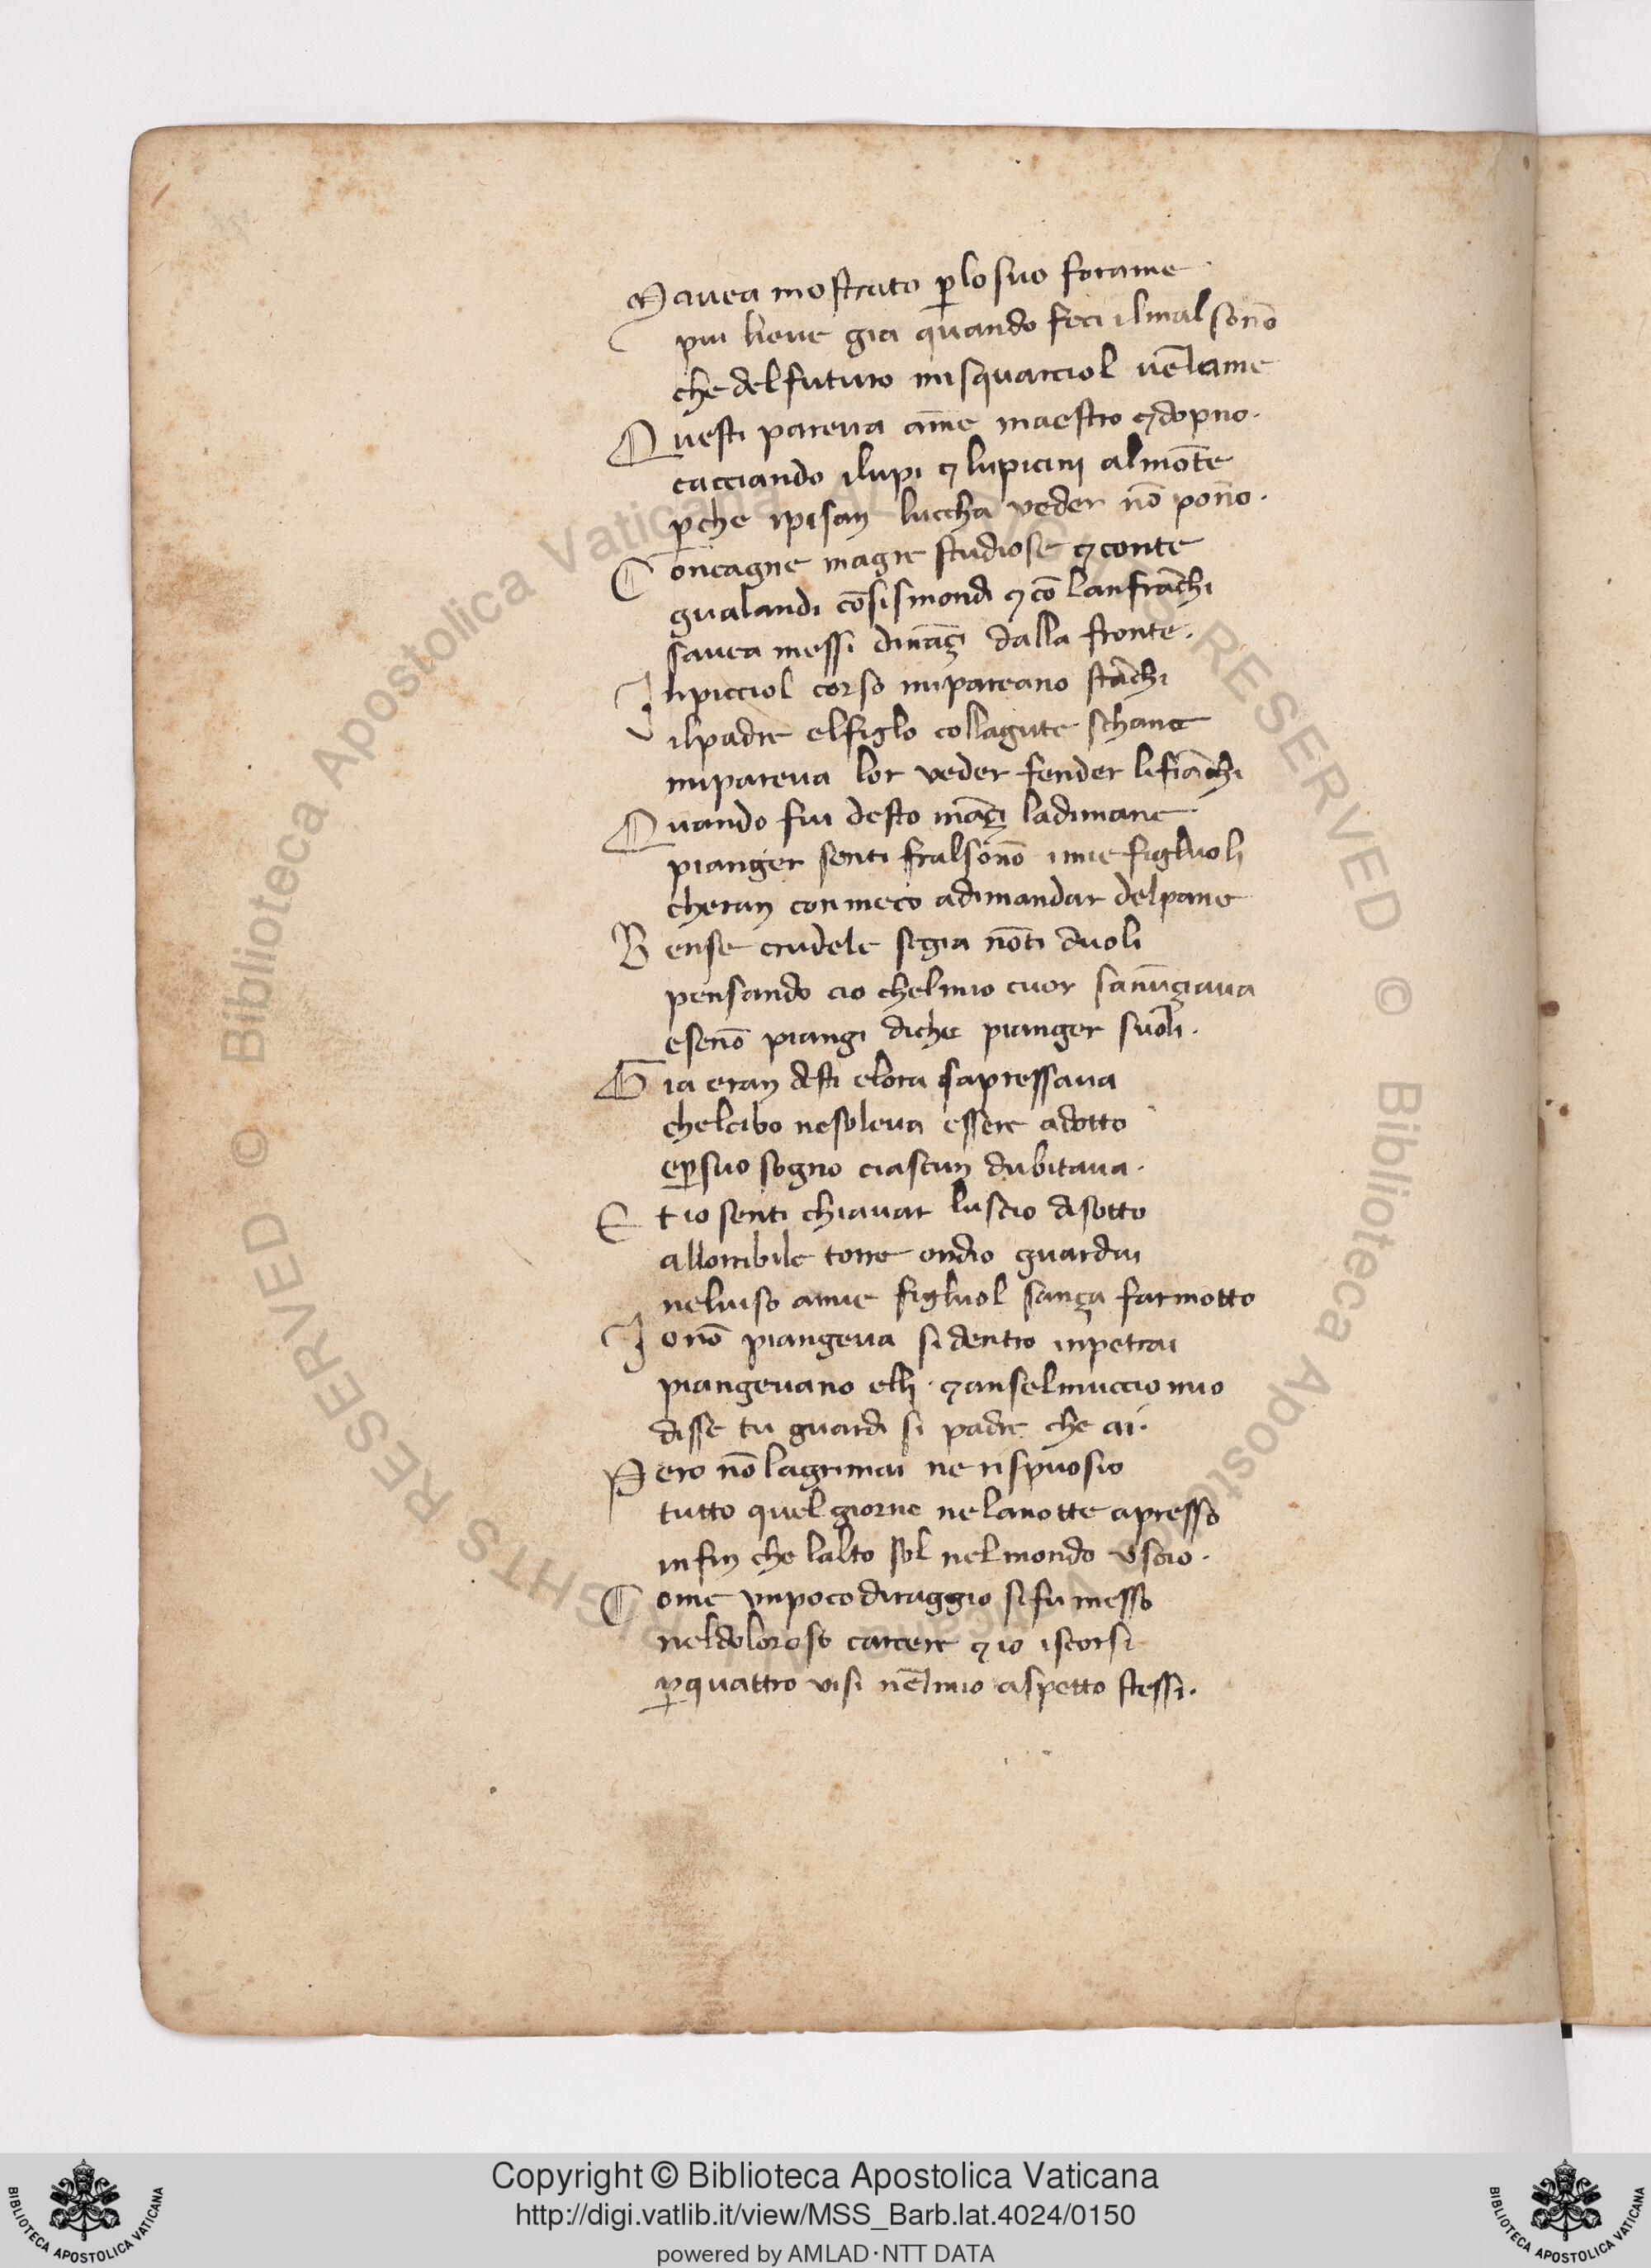 Mavea mostrato p̱ losuo forame
piu lieue gia quando feci ilmal sonno̅
che del futuro misquarciol uel̅ame
Questi pareua am̅e maestro ⁊ dopno.
cacciando ilupi ⁊ lupicini almo̅te
p̱che ipisan luccha veder no̅ pon̅o.
Concagne magre studiose ⁊ conte
gualandi co̅sismondi ⁊ co̅ lanfra̅chi
sauea messi dina̅çi dalla fronte.
Inpicciol corso mipareano sta̅chi
ilpadre elfiglo collagute schane
mipareua lor veder fender lifia̅chi
Quando fui desto ina̅çi ladimane
pianger senti fralson̅o imie figluoli
cheran conmeco adimandar delpane
Bense crudele segia no̅ti duoli
pensando cio chelmio cuor sanu̅çiaua
eseno̅ piangi diche pianger suoli.
Gia eran desti elora sapressaua
chelcibo nesoleua essere adotto
ep̱suo sogno ciascun dubitaua.
Et io senti chiauar luscio disotto
allorribile torre ondio guardai
neluiso amie figluol sança farmotto
Io no̅ piangeua si dentro inpetrai
piangeuano elli . ⁊ anselmuccio mio
disse tu guardi si padre che ai.
Pero no̅ lagrimai ne rispuosio
tutto quel giorno nelanotte apresso
infin che lalto sol nelmondo vscio.
Come vnpoco diraggio sifu messo
neldoloroso carcere ⁊ io iscorsi
p̱quattro visi ne̅lmio aspetto stessi.
© Biblioteca Apostolica Vaticana ALL RIGHTS RESERVED
© Biblioteca Apostolica Vaticana ALL RIGHTS RESERVED
Copyright © Biblioteca Apostolica Vaticana
http://digi.vatlib.it/view/MSS_Barb.lat.4024/0150
powered by AMLAD·NTT DATA
BIBLIOTECA APOSTOLICA VATICANA
BIBLIOTECA APOSTOLICA VATICANA